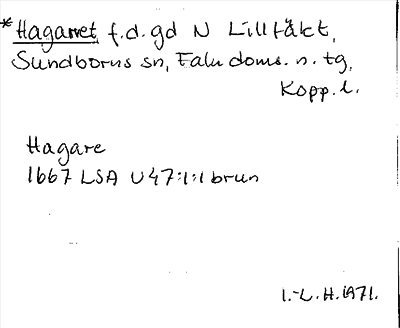 *Hagarret, f.d. gd N Lilltäkt,
Sundborns sn, Falu doms. n. tg,
Kopp. l.
Hagare
1667 LSA U47:1:1 brun
I.-L. H. 1971.